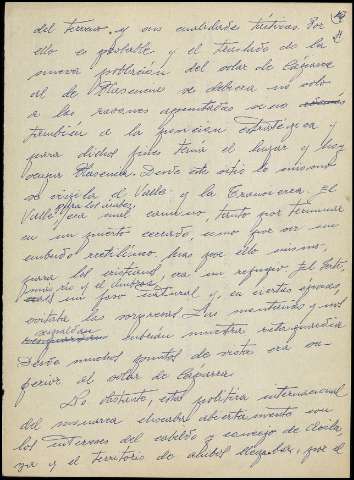 del terreno y sus cualidades tácticas. Por
ello es probable y el traslado de la
nueva población del solar de Caparra
al de Plasencia se debiera no solo
a las razones apuntadas sino
también a la función estratégica y
para dichos fines tenía el lugar y hoy
ocupa Plasencia. Desde este sitio lo mismo
se vigila el Valle y la Trasierra. El
Valle, para los árabes, era mal camino, tanto por terminar
en un puerto cerrado, como por ser un
embudo rectilíneo, pero por ello mismo,
para los cristianos, era un refugio. Jel Jerte,
un foso natural y, en ciertas épocas,
evitaba las sorpresas. Las montañas y
respaldan cubrían nuestra retaguardia
Desde muchos puntos de vista era su-
perior al solar de Caparra
No obstante, esta política internacional
del monarca chocaba abiertamente con
los intereses del cabildo y concejo de Avila
ya y el territorio de ahubil llegaba, por el